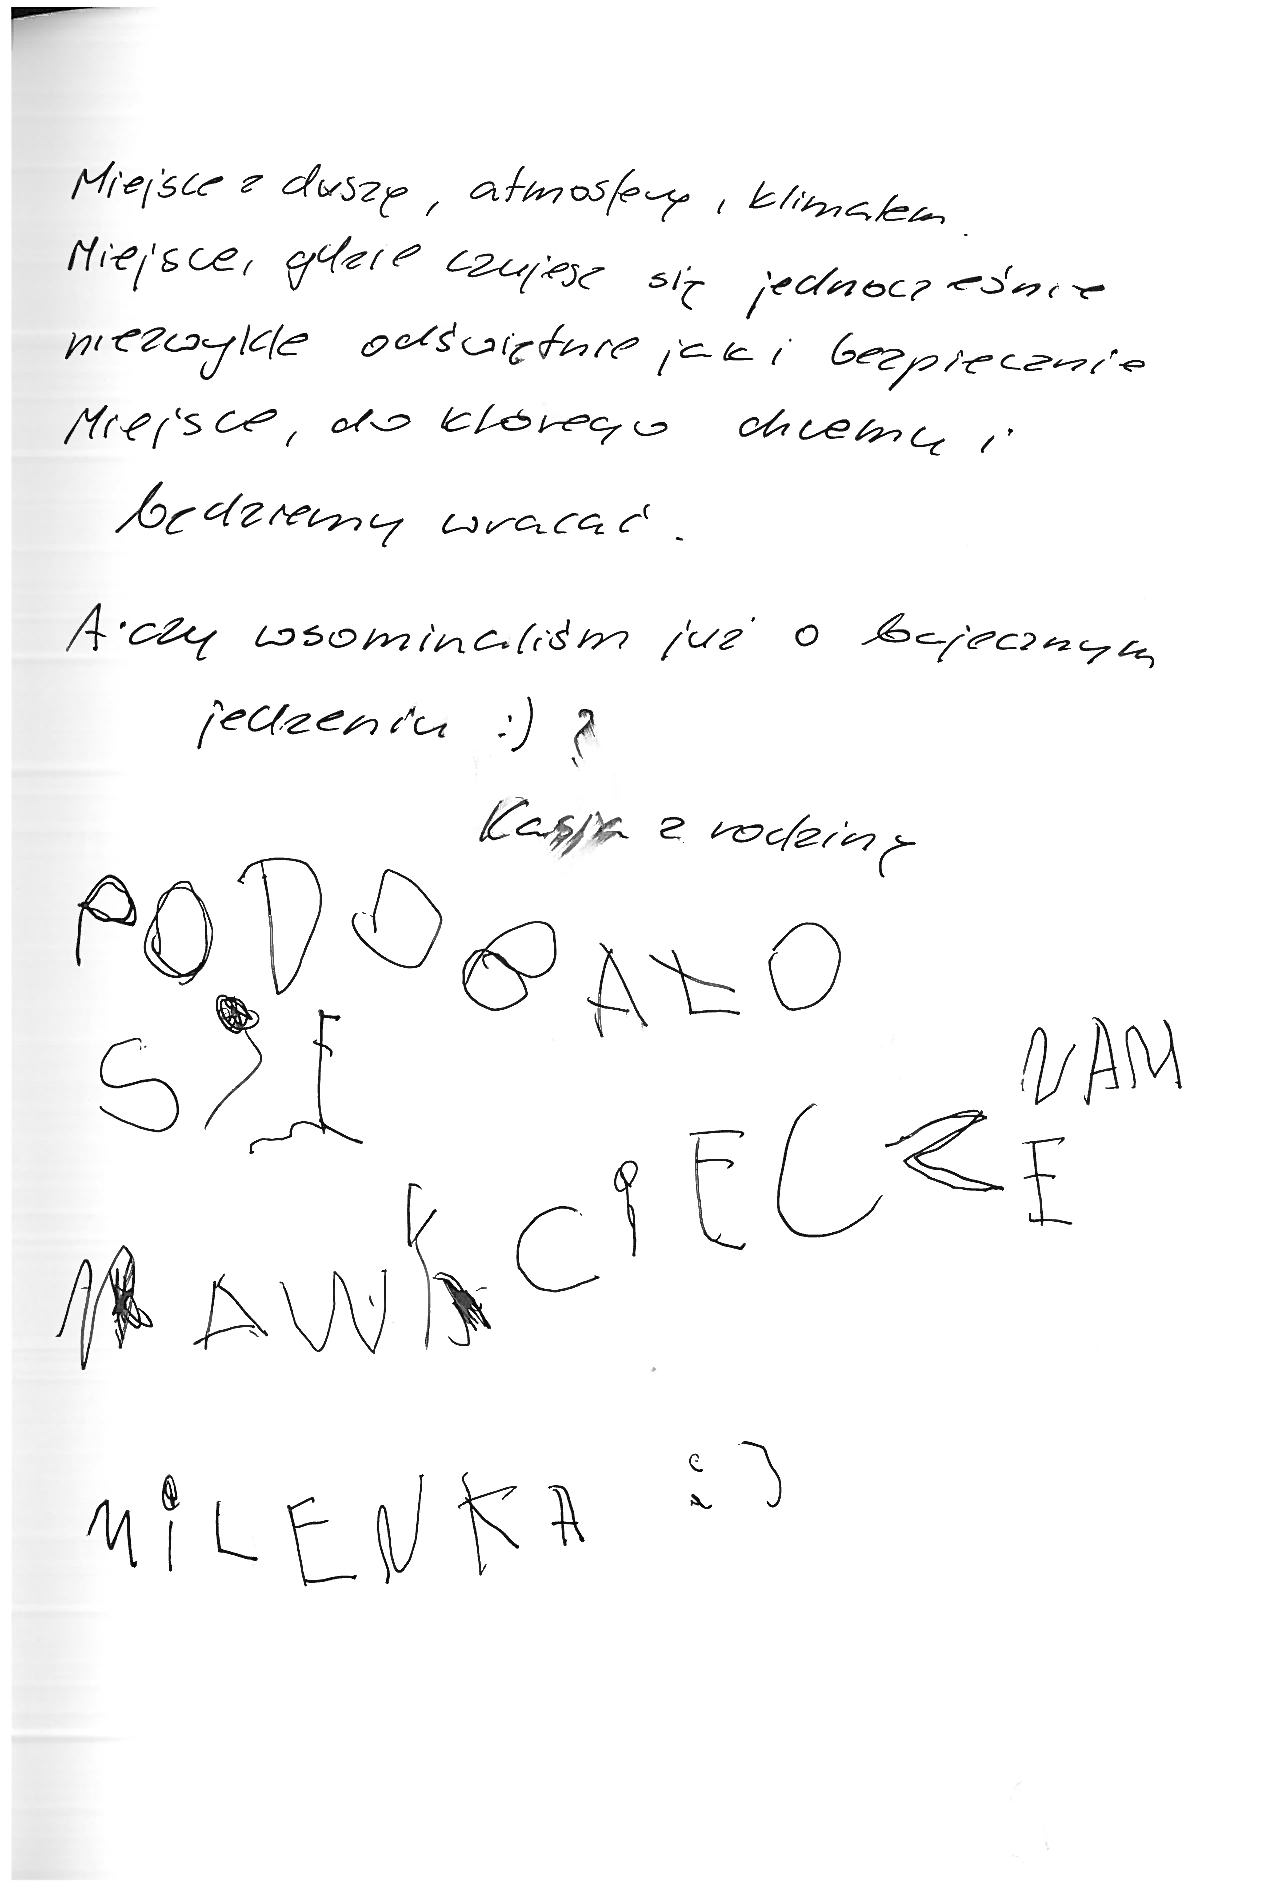 Miejsce z duszę, atmosferę, klimatem.
Miejsce, gdzie czujesz się jednocześnie
niezwykle odświętnie jak i bezpiecznie
Miejsce, do którego chcemy i
będziemy wracać.
A czy wsominaliśm już o bajecznym
jedzeniu :) ?
Kasja z rodziną
PODOBAŁO
SIĘ
NAM
NAWYCIECZE
MILENKA :)